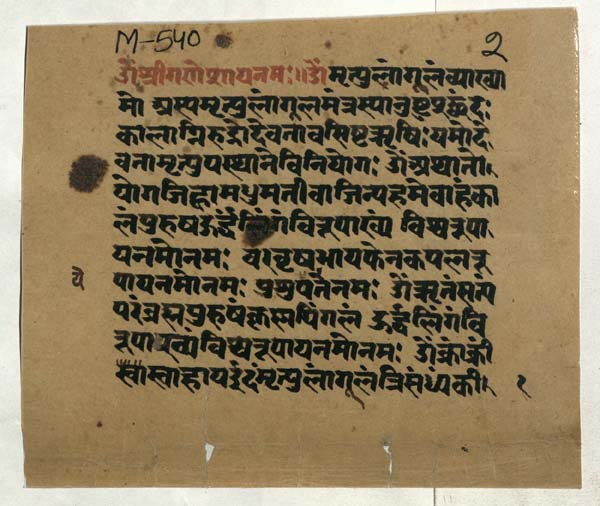 M-540
२
ॐ श्रीगणेशायनमः॥ ॐ मृत्युलांगूलंव्याख्या
मो अस्यमृत्युलांगूलमंत्रस्यानुष्टुप्छंदः
कालाग्निरुद्रोदेवतावसिष्टऋषिः यमोदे
वतामृत्युपस्थानेविनियोगः ॐ अथातो।
योगजिह्वामधुमतीवाजिन्यहमेवाहंका
लंपुरुषऊर्द्धलिंगंविरूपाख्यं विश्वरूपा
यनमोनमः फेनकपलरू
ये
पायनमोनमः पशुपतेनमः ॐ ऋतंसत्य
परंब्रह्मपुरुषंकृष्णपिंगलं ऊर्द्धलिंगंवि
रूपाख्यंविश्वरूपायनमोनमः ॐ क्रांक्रीं
स्वाहा मृत्युलांगूलंत्रिसंध्यंकी। १